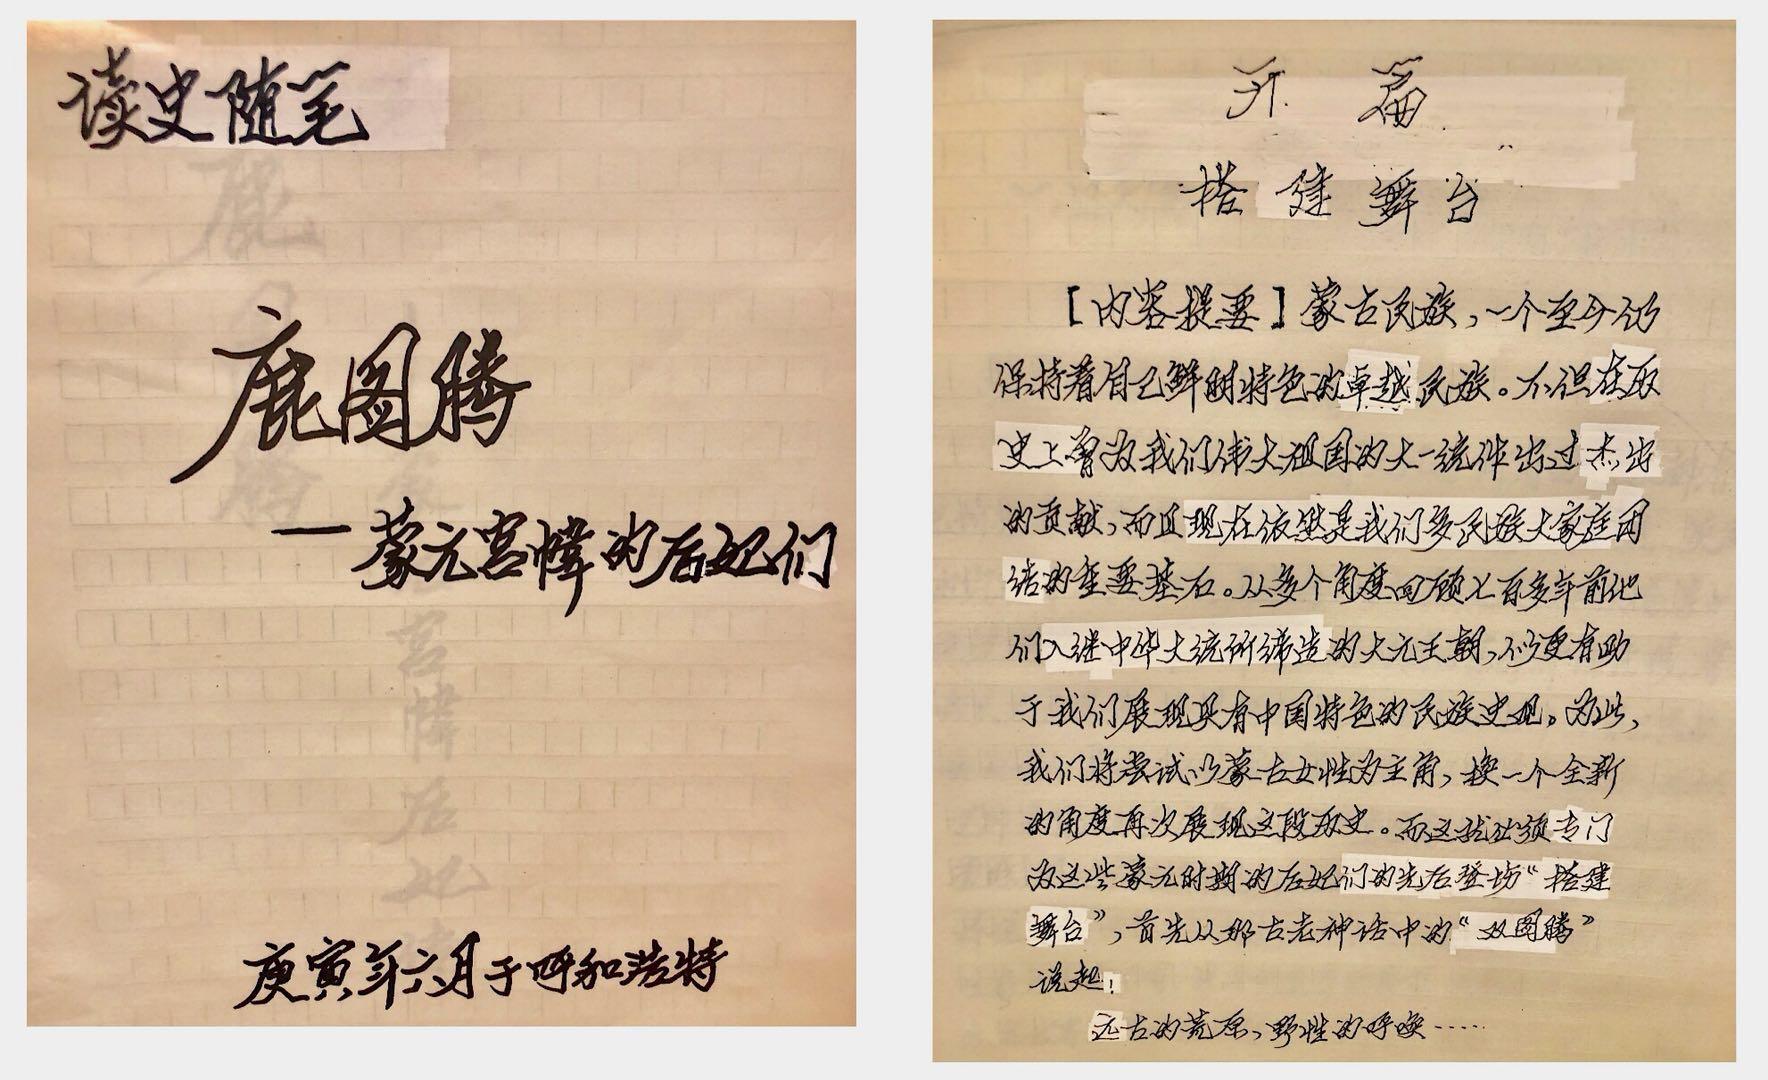 读史随笔
鹿图腾
——蒙元宫帏的后妃们
庚寅年六月于呼和浩特
开篇
搭建舞台
【内容提要】蒙古民族，一个至今仍
保持着自己鲜明特色的卓越民族。不但在历
史上曾为我们伟大祖国的大一统作出过杰出
的贡献，而且现在依然是我们多民族大家庭团
结的重要基石。从多个角度回顾七百多年前他
们入继中华大统所缔造的大元王朝，似更有助
于我们展现具有中国特色的民族史观。为此，
我们将尝试以蒙古女性为主角，换一个全新
的角度再次展现这段历史。而这就必须专门
为这些蒙元时期的后妃们的先后登场“搭建
舞台”，首先从那古老神话中的“双图腾”
说起！
远古的荒原、野性的呼唤……